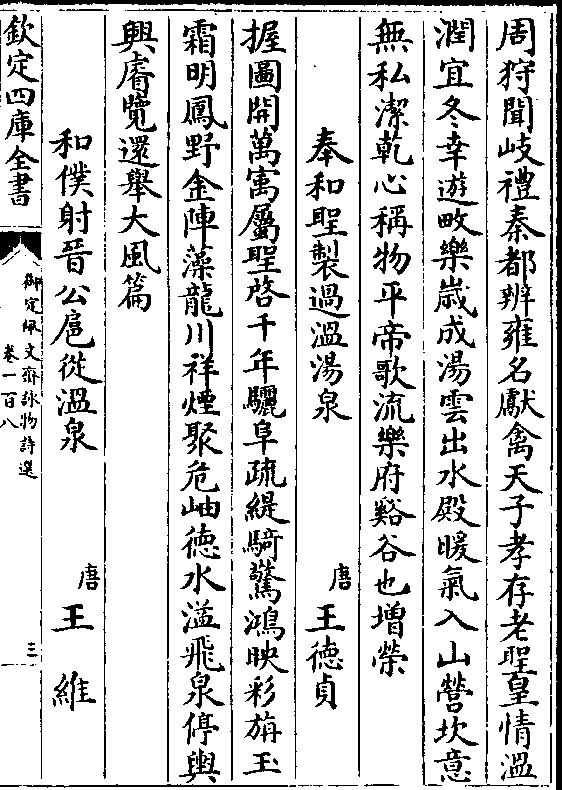 周狩聞岐禮秦都辨雍名獻禽天子孝存老聖皇情溫
潤宜冬幸遊畋樂歲成湯雲出水殿暖氣入山營坎意
無私潔乾心稱物平帝歌流樂府谿谷也增榮
奉和聖製過溫湯泉 唐 王德貞
握圖開萬㝢屬聖啓千年驪阜疏緹騎驚鴻映彩旃玉
霜明鳳野金陣藻龍川祥煙聚危岫德水溢飛泉停輿
興睿覽還舉大風篇
和僕射晉公扈從溫泉 唐 王維
欽定四庫全書
御定佩文齋詠物詩選
卷一百八
三